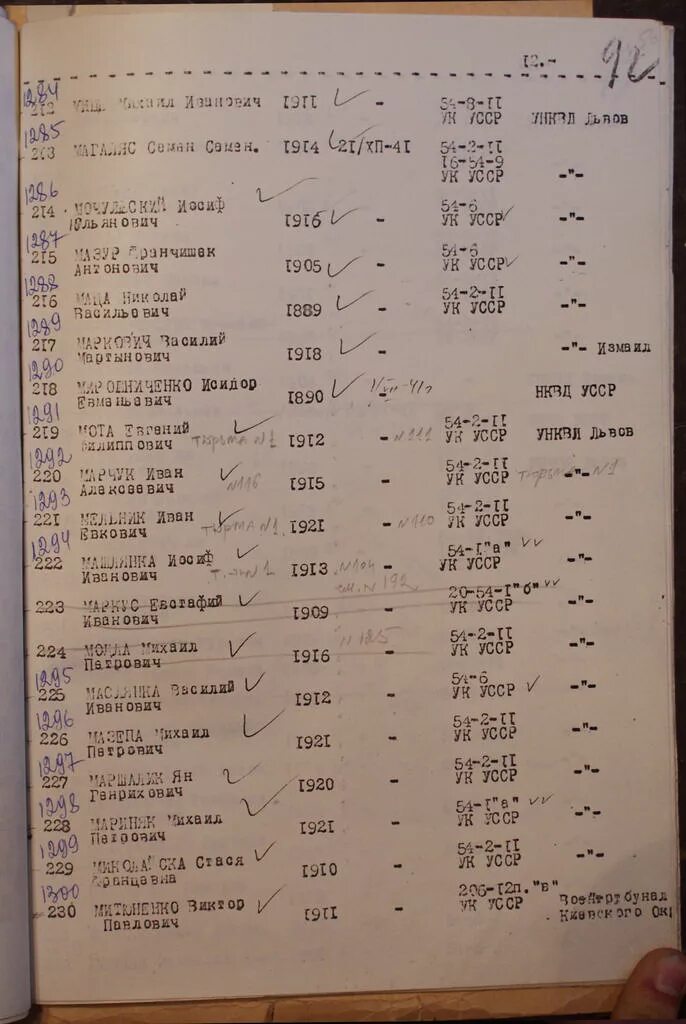 12.- 92
1284
212 Михаил Иванович 1911 - 54-8-II
УК УССР УНКВД Львов
1285
213 МАГАЛЯС Семан Семен. 1914 21/ХП-41 54-2-II
16-54-9
УК УССР -"-
1286
214 МОЧУЛЬСКИЙ Иосиф 1916 - 54-6
Юльянович УК УССР -"-
1287
215 МАЗУР Франчишек 1905 - 54-6
Антонович УК УССР -"-
1288
216 МАЦА Николай 1889 - 54-2-II
Васильович УК УССР -"-
1289
217 МАРКОВИЧ Василий 1918 - -"- Измаил
Мартынович
1290
218 МИРОШНИЧЕНКО Исидор 1890 - НКВД УССР
Евманьевич
1291
219 МОТА Евгений тюрьма №1 1912 - №111 54-2-II
Филиппович УК УССР УНКВД Львов
1292
220 МАРЧУК Иван №116 1915 - 54-2-II тюрьма №1
Алексеевич УК УССР -"-
1293
221 МЕЛЬНИК Иван тюрьма №1 1921 - №110 54-2-II
Евкович УК УССР -"-
1294
222 МАШЛЯНКА Иосиф 1913 №104 54-I"а"
Иванович УК УССР -"-
см. №192
223 МАРКУС Евстафий 1909 - 20-54-I"б"
Иванович УК УССР -"-
224 Михаил 1916 - №125 54-2-II
Петрович УК УССР -"-
1295
225 МАСЛЯНКА Василий 1912 - 54-6
Иванович УК УССР -"-
1296
226 МАЗЕПА Михаил 1921 - 54-2-II
Петрович УК УССР -"-
1297
227 МАРШАЛИК Ян 1920 - 54-2-II
Генрихович УК УССР -"-
1298
228 МАРИНЯК Михаил 1921 - 54-I"а"
Петрович УК УССР -"-
1299
229 МИКОЛАЙСКА Стася 1910 - 54-2-II
Францевна УК УССР -"-
1300
230 МИТЮНЕНКО Виктор 1911 - 206-12п."в"
Павлович УК УССР Воентрибунал
Киевского Ок